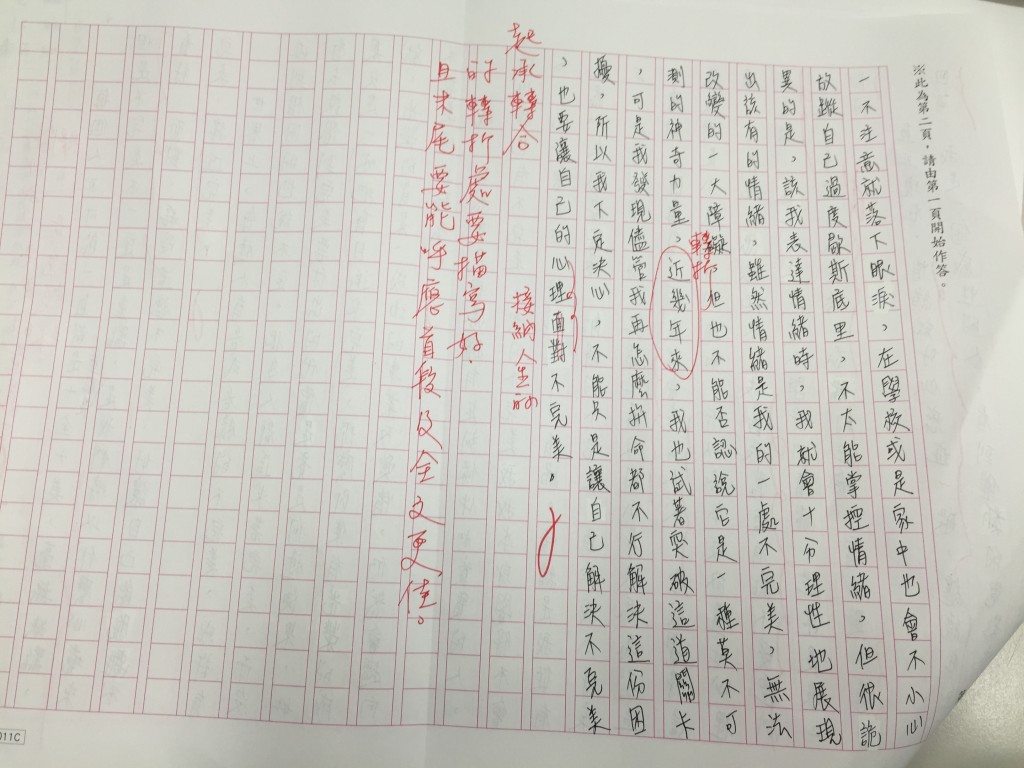 ※此為第二頁，請由第一頁開始作答。
一不注意就落下眼淚，在學校或是家中也會不小心
故蹤自己過度歇斯底里，不太能掌控情緒，但很詭
異的是，該我表達情緒時，我就會十分理性地展現
出該有的情緒，雖然情緒是我的一處不完美，無法
改變的一大障礙，但也不能否認說它是一種莫不可
轉折
測的神奇力量，近幾年來，我也試著突破這道關卡
，可是我發現儘管我再怎麼拚命都不行解決這份困
擾，所以我下定決心，不能只是讓自己解決不完美
，也要讓自己的心理面對不完美。
接納人生的
起承轉合
的轉折處要描寫好.
且末尾要能呼應首段及全文更佳。
011C